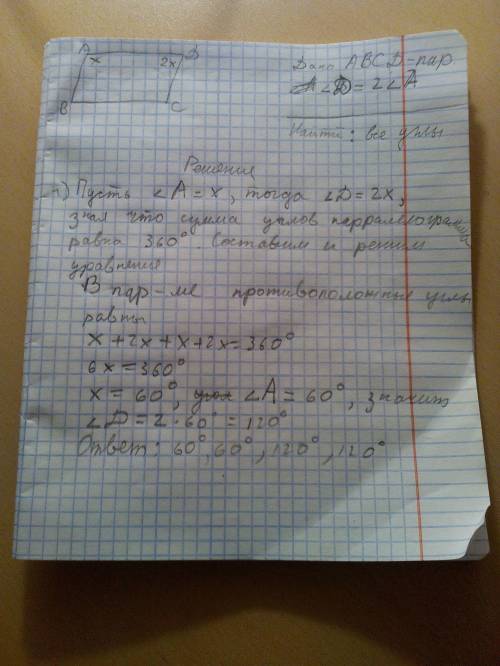 A D
x 2x
B C
Дано ABCD-пар.
∠D = 2∠A
Найти: все углы
Решение
1) Пусть ∠A = x, тогда ∠D = 2x,
зная что сумма углов парралелограмма
равна 360°. Составим и решим
уравнение
В пар-ме противоположные углы
равны
x + 2x + x + 2x = 360°
6x = 360°
x = 60°, ∠A = 60°, значит
∠D = 2·60° = 120°
Ответ: 60°, 60°, 120°, 120°